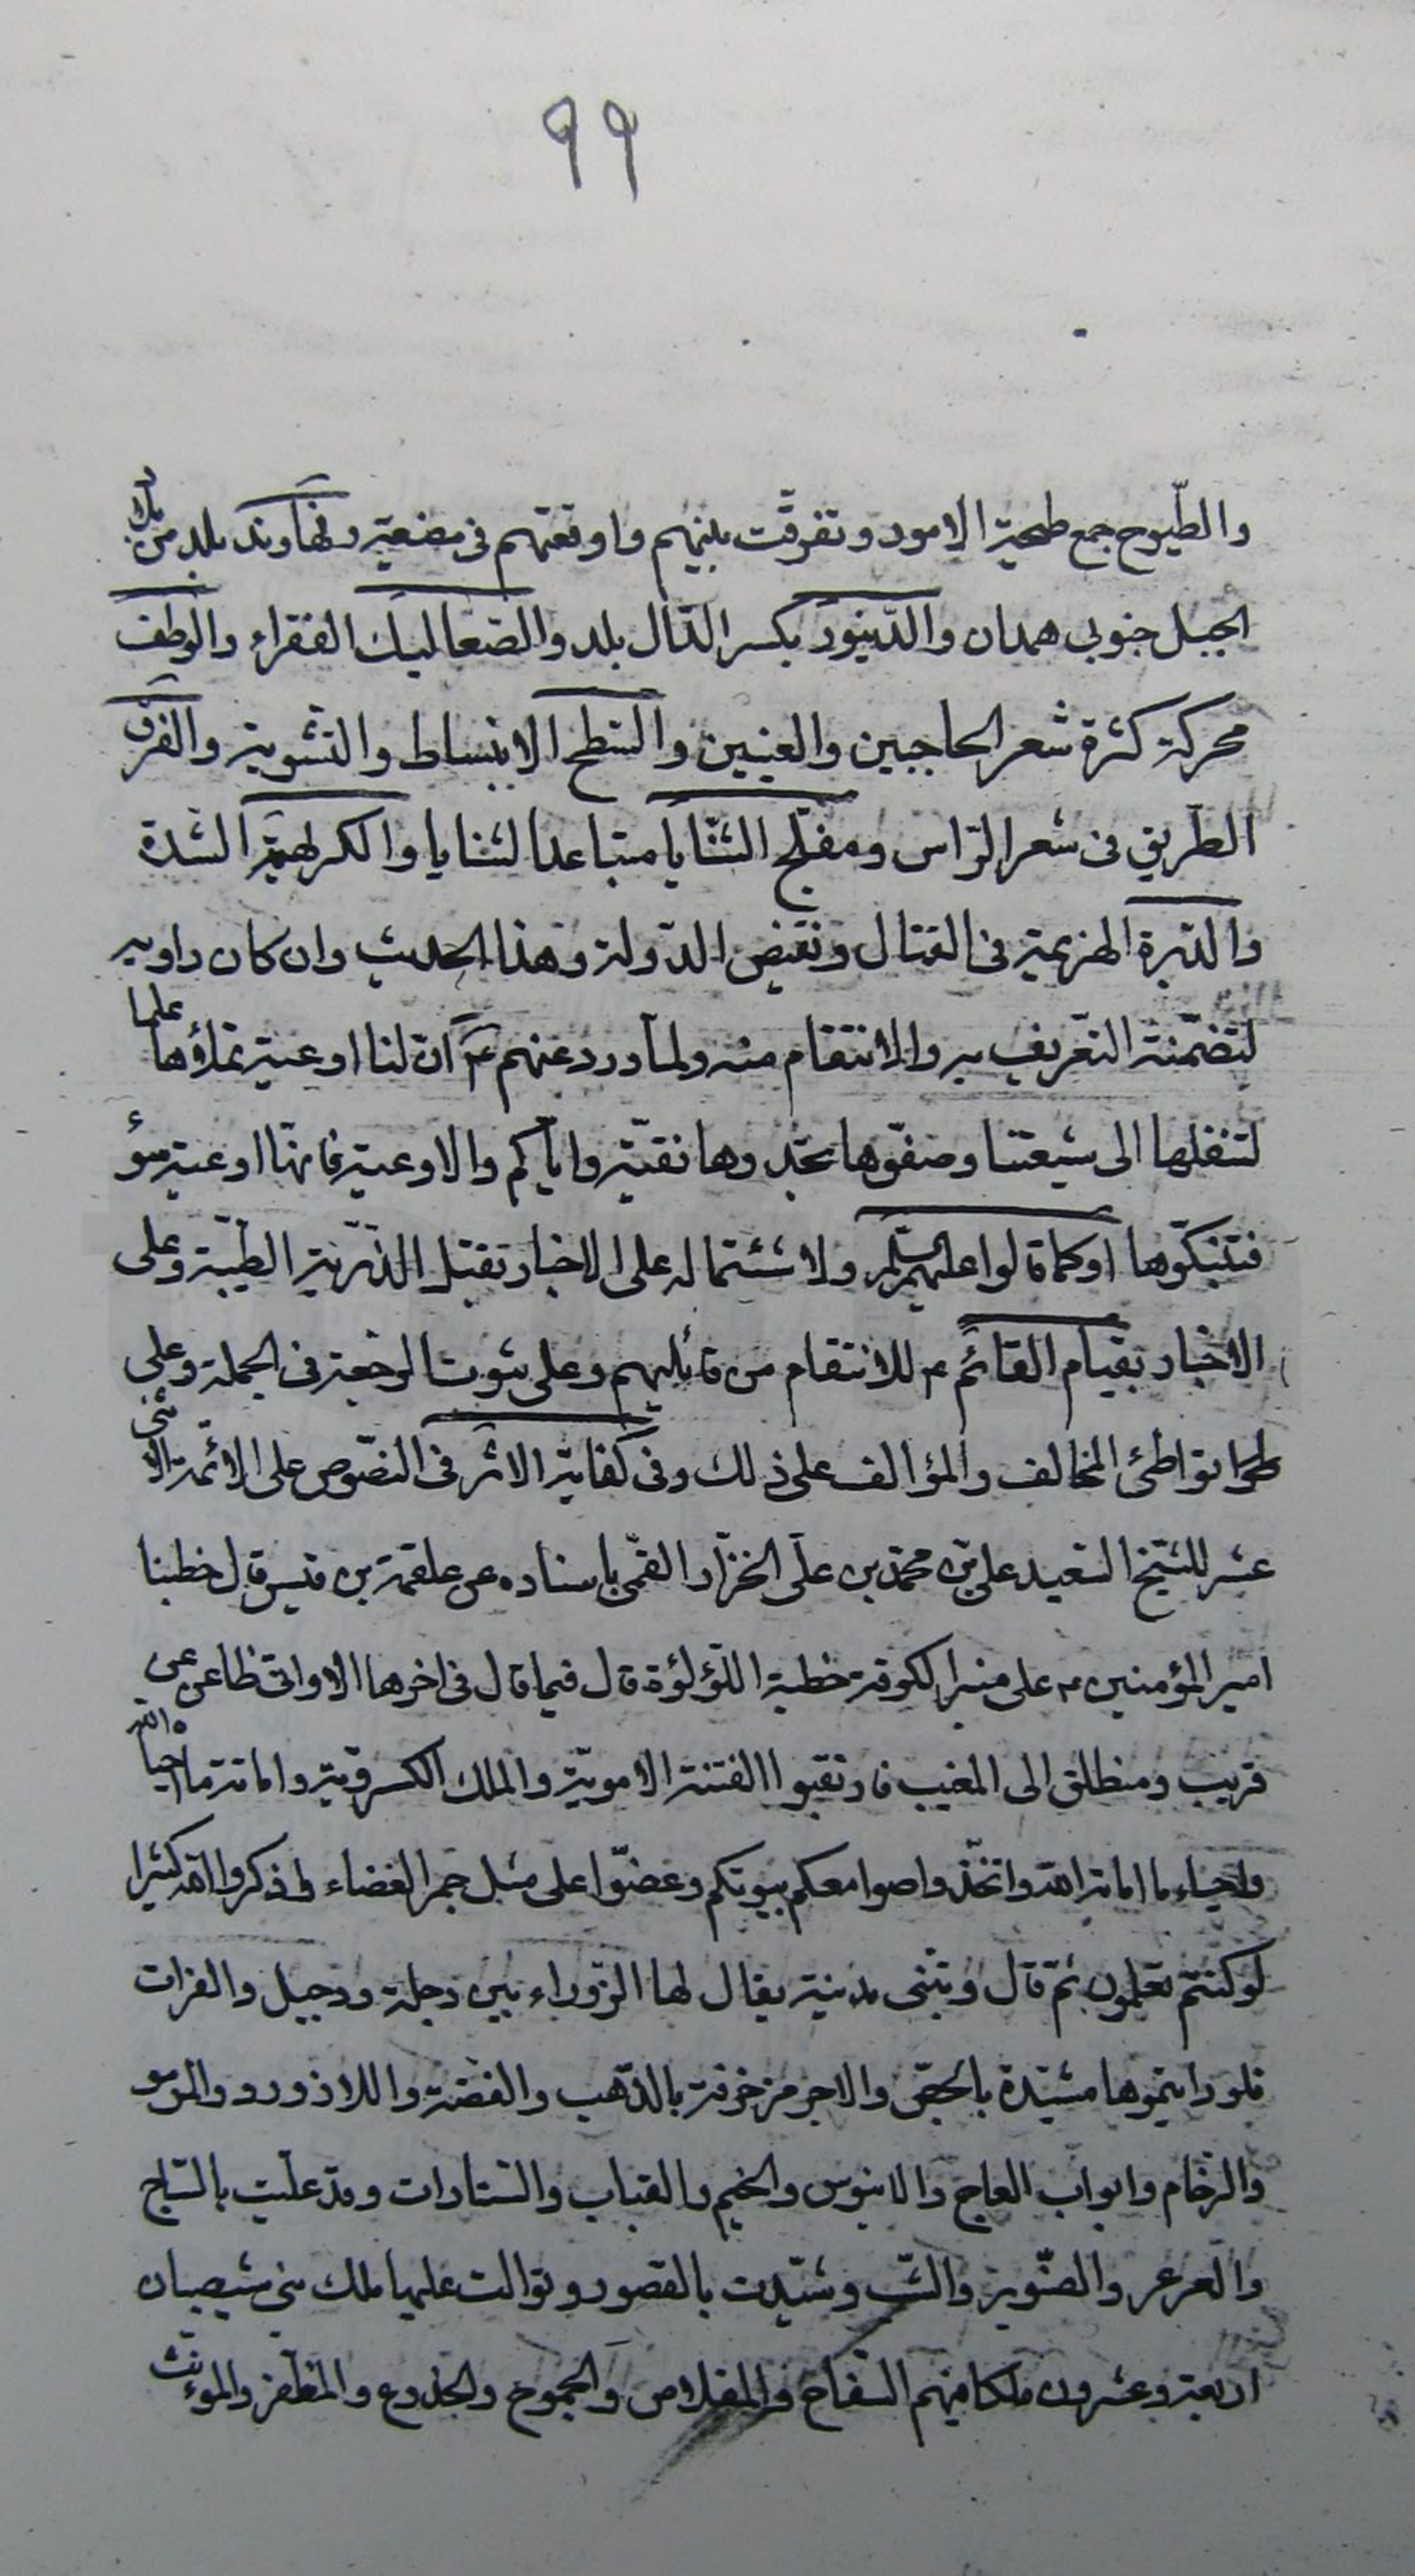 ٩٩
والطّيوح جمع طحية الامور وتفرقت بينهم واوقعتهم في مضعية ونهاوند بلد من بلاد
الجبل جنوبي همدان والدّينور بكسر الدّال بلد والصّعاليك الفقراء والوطف
محركة كثرة شعر الحاجبين والعينين والسّطح الانبساط والتّسوية والفرق
الطّريق في شعر الرّاس ومفلّج الثّنايا متباعد الثنايا والكريهة الشدة
والدّبرة الهزيمة في القتال ونقيض الدّولة وهذا الحديث وان كان راويه
لتضمّنة التّعريف به والانتقام منه ولما ورد عنهم ع انّ لنا اوعية نملؤها علما
لتنقلها الى شيعتنا وصفّوها تجدوها نقيّة وايّاكم والاوعية فانّها اوعية سوء
فتنكّبوها او كما قالوا عليهم السلم ولاشتماله على الاخبار بقتل الذّرية الطيّبة وعلى
الاخبار بقيام القائم ع للانتقام من قاتليهم وعلى ثبوت الرجعة في الجملة وعلى
تواطئ المخالف والمؤالف على ذلك وفي كفاية الاثر في النصّوص على الائمّة الاثنى
عشر للشيخ السّعيد على بن محمّد بن علّى الخزّاز القمّى باسناده عن علقمة بن قيس قال خطبنا
امير المؤمنين ع على منبر الكوفة خطبة اللّؤلؤة قال فيما قال في اخرها الا وانى ظاعن عن
قريب ومنطلق الى المغيب فارتقبوا الفتنة الامويّة والملك الكسرويّة واماتة ما احياه الله
واحياء ما اماته الله واتّخذوا صوامعكم بيوتكم وعضّوا على مثل جمر الغضاء واذكروا الله كثيرا
لو كنتم تعلمون ثمّ قال وتبنى مدينة يقال لها الزّوراء بين دجلة ودجيل والفرات
فلو رايتموها مشيّدة بالجصّ والاجر مزخرفة بالذّهب والفضّة واللازورد والمرمر
والرّخام وابواب العاج والابنوس والخيم والقباب والستارات وقد عليت بالسّاج
والعرعر والصّنوبر والشّب وشيّدت بالقصور وتوالت عليها ملك بنى شيصبان
اربعة وعشرون ملكا فيهم السّفاح والمقلاص والجموح والخدوع والمظفر والمؤنث